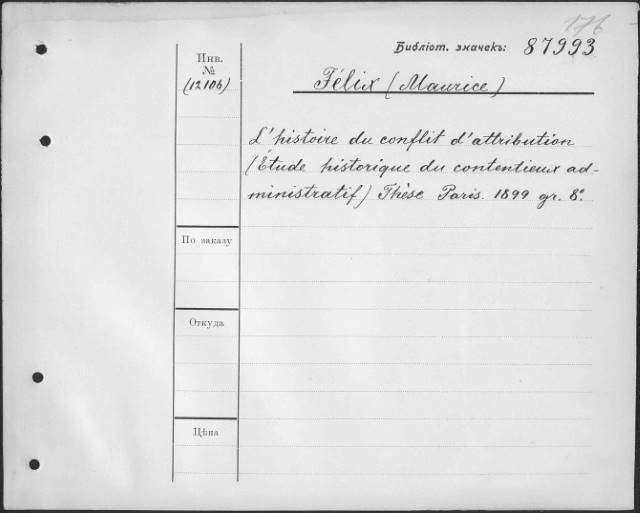 176
Библіот. значекъ: 87993
Инв.
№
(12106)
Félix (Maurice)
L'histoire du conflit d'attribution
(Étude historique du contentieux ad-
ministratif) Thèse Paris. 1899 gr. 8º.
По заказу
Откуда
Цѣна